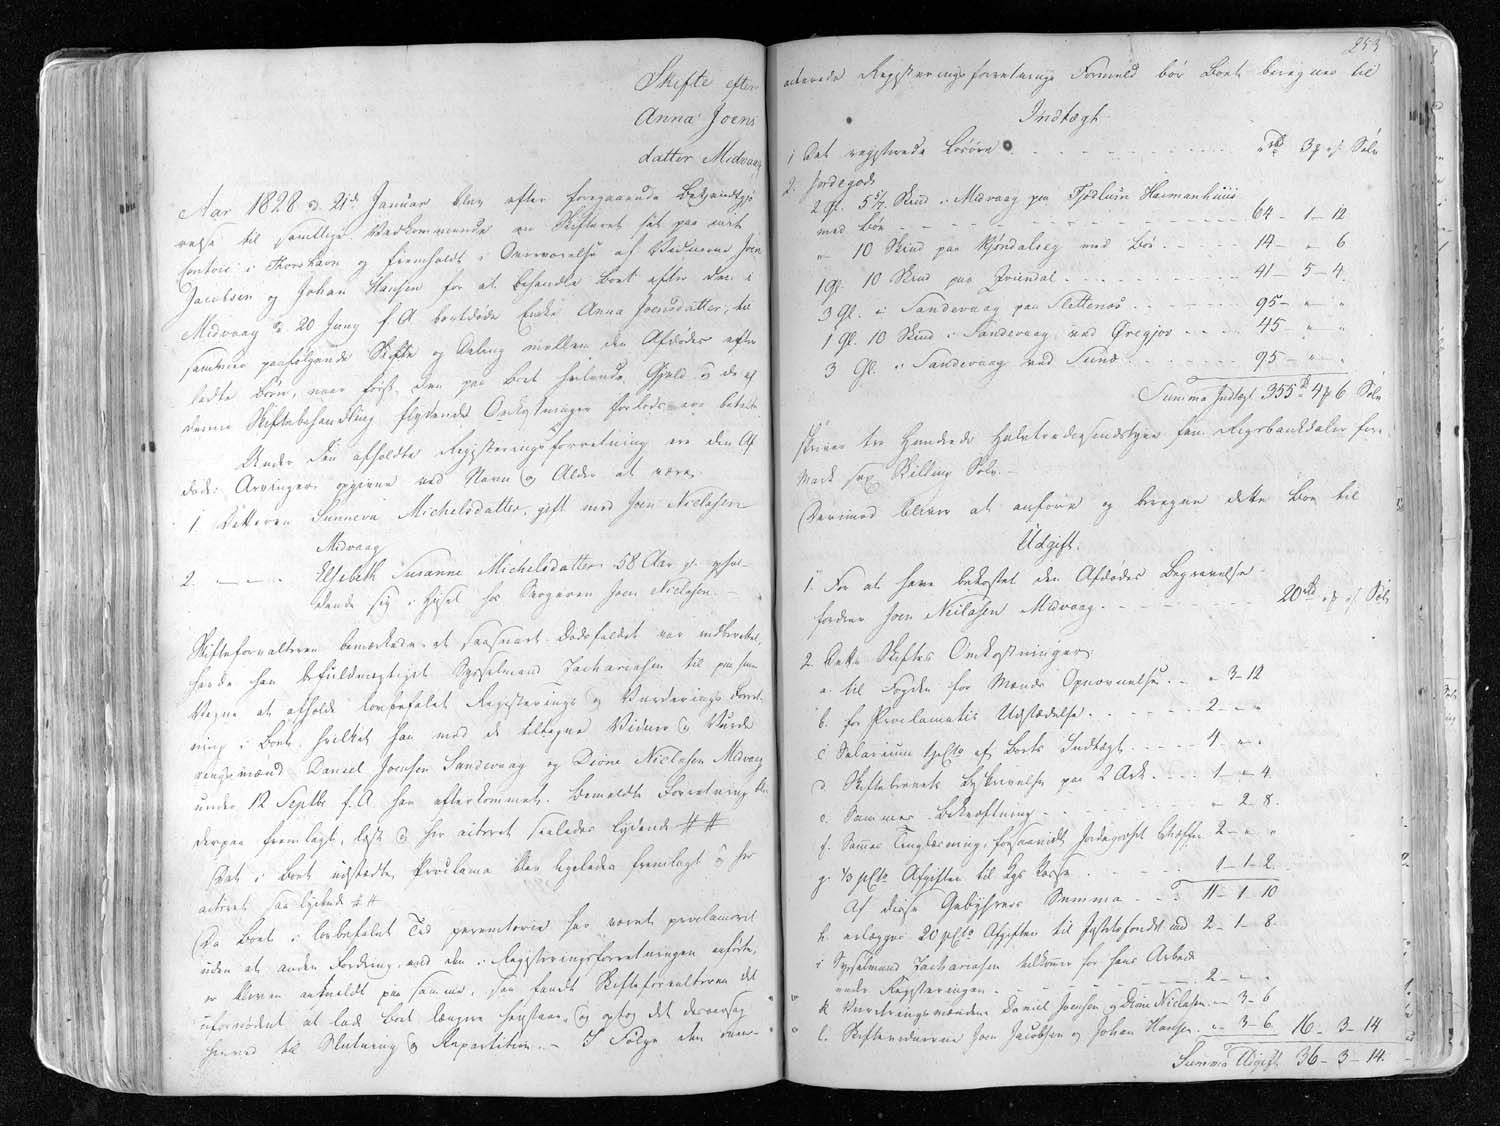 Skifte efter
Anna Joens
datter Midvaag
Aar 1828 d. 21de Januar blev efter foregaaende Bekiendtgjø
relse til samtlige Vedkommende en Skifteret sat paa
contoir i Thorshavn og fremholdt i Overværelse af Vidnerne Joen
Jacobsen og Johan Hansen for at behandle Boet efter den i
Midvaag d. 20 Juny f. A. bortdøde Enke Anna Joensdatter, til
paafølgende Skifte og Deling mellem den Afdødes efter
ladte Børn, naar først den paa Boet heftende Gjæld og de af
denne Skiftebehandling flydende Omkostninger forlods ere
Under den afholdte Registreringsforretning ere den Af
dødes Arvinger opgivne ved Navn og Alder at være
1 Datteren Sunneva Michelsdatter, gift med Joen Niclasen
Midvaag
2. — Elsebeth Susanne Michelsdatter 58 Aar g. ophol-
dende sig i Huset hos Svogeren Joen Niclasen. —
Skifteforvalteren bemærkede at saasnart Dødsfaldet var indberettet,
havde han befuldmægtiget Sysselmand Zachariasen til paa sine
Vegne at afholde lovbefalet Registrerings og Vurderings Forret-
ning i Boet, hvilket han med de tiltagne Vidner og Vurde
ringsmænd Daniel Joensen Sandevaag og Dione Niclasen Midvaag
under 12 Septbr f. A. har efterkommet. Bemeldte Forretning blev
derpaa fremlagt, læst og her acteret saaledes lydende ##
Det i Boet udstædte Proclama blev ligeledes fremlagt og her
acteret saa lydende ##
Da Boet i lovbefalet Tid peremtorie har været proclameret
uden at anden Fordring, end den i Registreringsforretningen anførte,
er bleven anmeldt paa samme, saa fandt Skifteforvalteren det
ufornødent at lade Boet længere henstaae, og optog det desaarsag
herved til Slutning og Repartition. — I Følge den oven-
253
aciterede Registreringsforretnings Formeld bør Boets beregnes til
Indtægt
1 Det registrerede Løsøre - - - " rbd 3 ₰ " s Sølv
2. Jordegods
2 Gl. 5 5/7 Skind i Midvaag paa Fjødlum Heimanhuus
med Bøe - - - 64 – 1 – 12
" 10 Skind paa Kjøndalseg med Bøe - - - 14 – " 6
1 Gl. 10 Skind paa - - - 41 – 5 – 4.
3 Gl. i Sandevaag paa Slettenøs - - - 95 – " "
1 Gl. 10 Skind i Sandevaag ved Øregjov - - - 45 – " "
3 Gl. i Sandevaag ved Sund - - - 95 – " "
Summa Indtægt 355 rd 4 ₰ 6 Sølv
skriver tre Hundrede Halvtredsindstyve fem Rigsbankdaler fire
Mark sex Skilling Sølv. –
Derimod bliver at anføre og beregne dette Boe til
Udgift.
1. For at have bekostet den Afdødes Begravelse
fordrer Joen Niclasen Midvaag - - - 20 rbd " ₰ " s Sølv
2. Dette Skiftes Omkostninger:
a. til Fogden for Mænds Opnævnelse - - " 3 – 12
b. for Proclamatis Udstædelse - - - 2 – " "
c Salarium 1 pCto af Boets Indtægt - - - 4 " "
d. Skiftebrevets beskrivelse paa 2 Ark. - - - 1 – " 4.
e. Sammes bekræftning - - - " 2 – 8.
f. Sammes Tinglæsning, forsaavidt Jordegodset 2 – " "
g. 1/3 pCto Afgiften til Kgs Kasse - - - 1 – 1 – 2
Af disse Gebyhrers Summa - - 11 – 1 – 10
h. erlægges 20 pCto Afgiften til Justitsfondet med 2 – 1 – 8.
i Sysselmand Zachariasen tilkommer for hans Arbeide
ved Registreringen - - - 2 – " "
k Vurderingsmændene Daniel Joensen og Dione Niclasen - " 3 – 6
l. Skiftevidnerne Joen Jacobsen og Johan Hansen - " 3 – 6. 16 – 3 – 14
Summa Udgift 36 – 3 – 14.